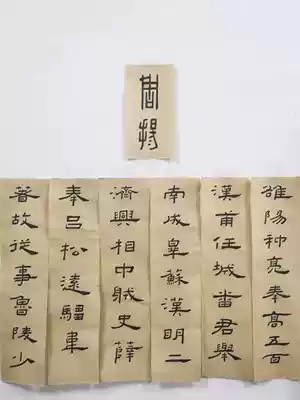 雒陽种亮奉高五百
漢甫任城番君舉
南成皋蘇漢明二
濟興相中賊史薛
奉呂松遠騶韋
故從事魯陵少